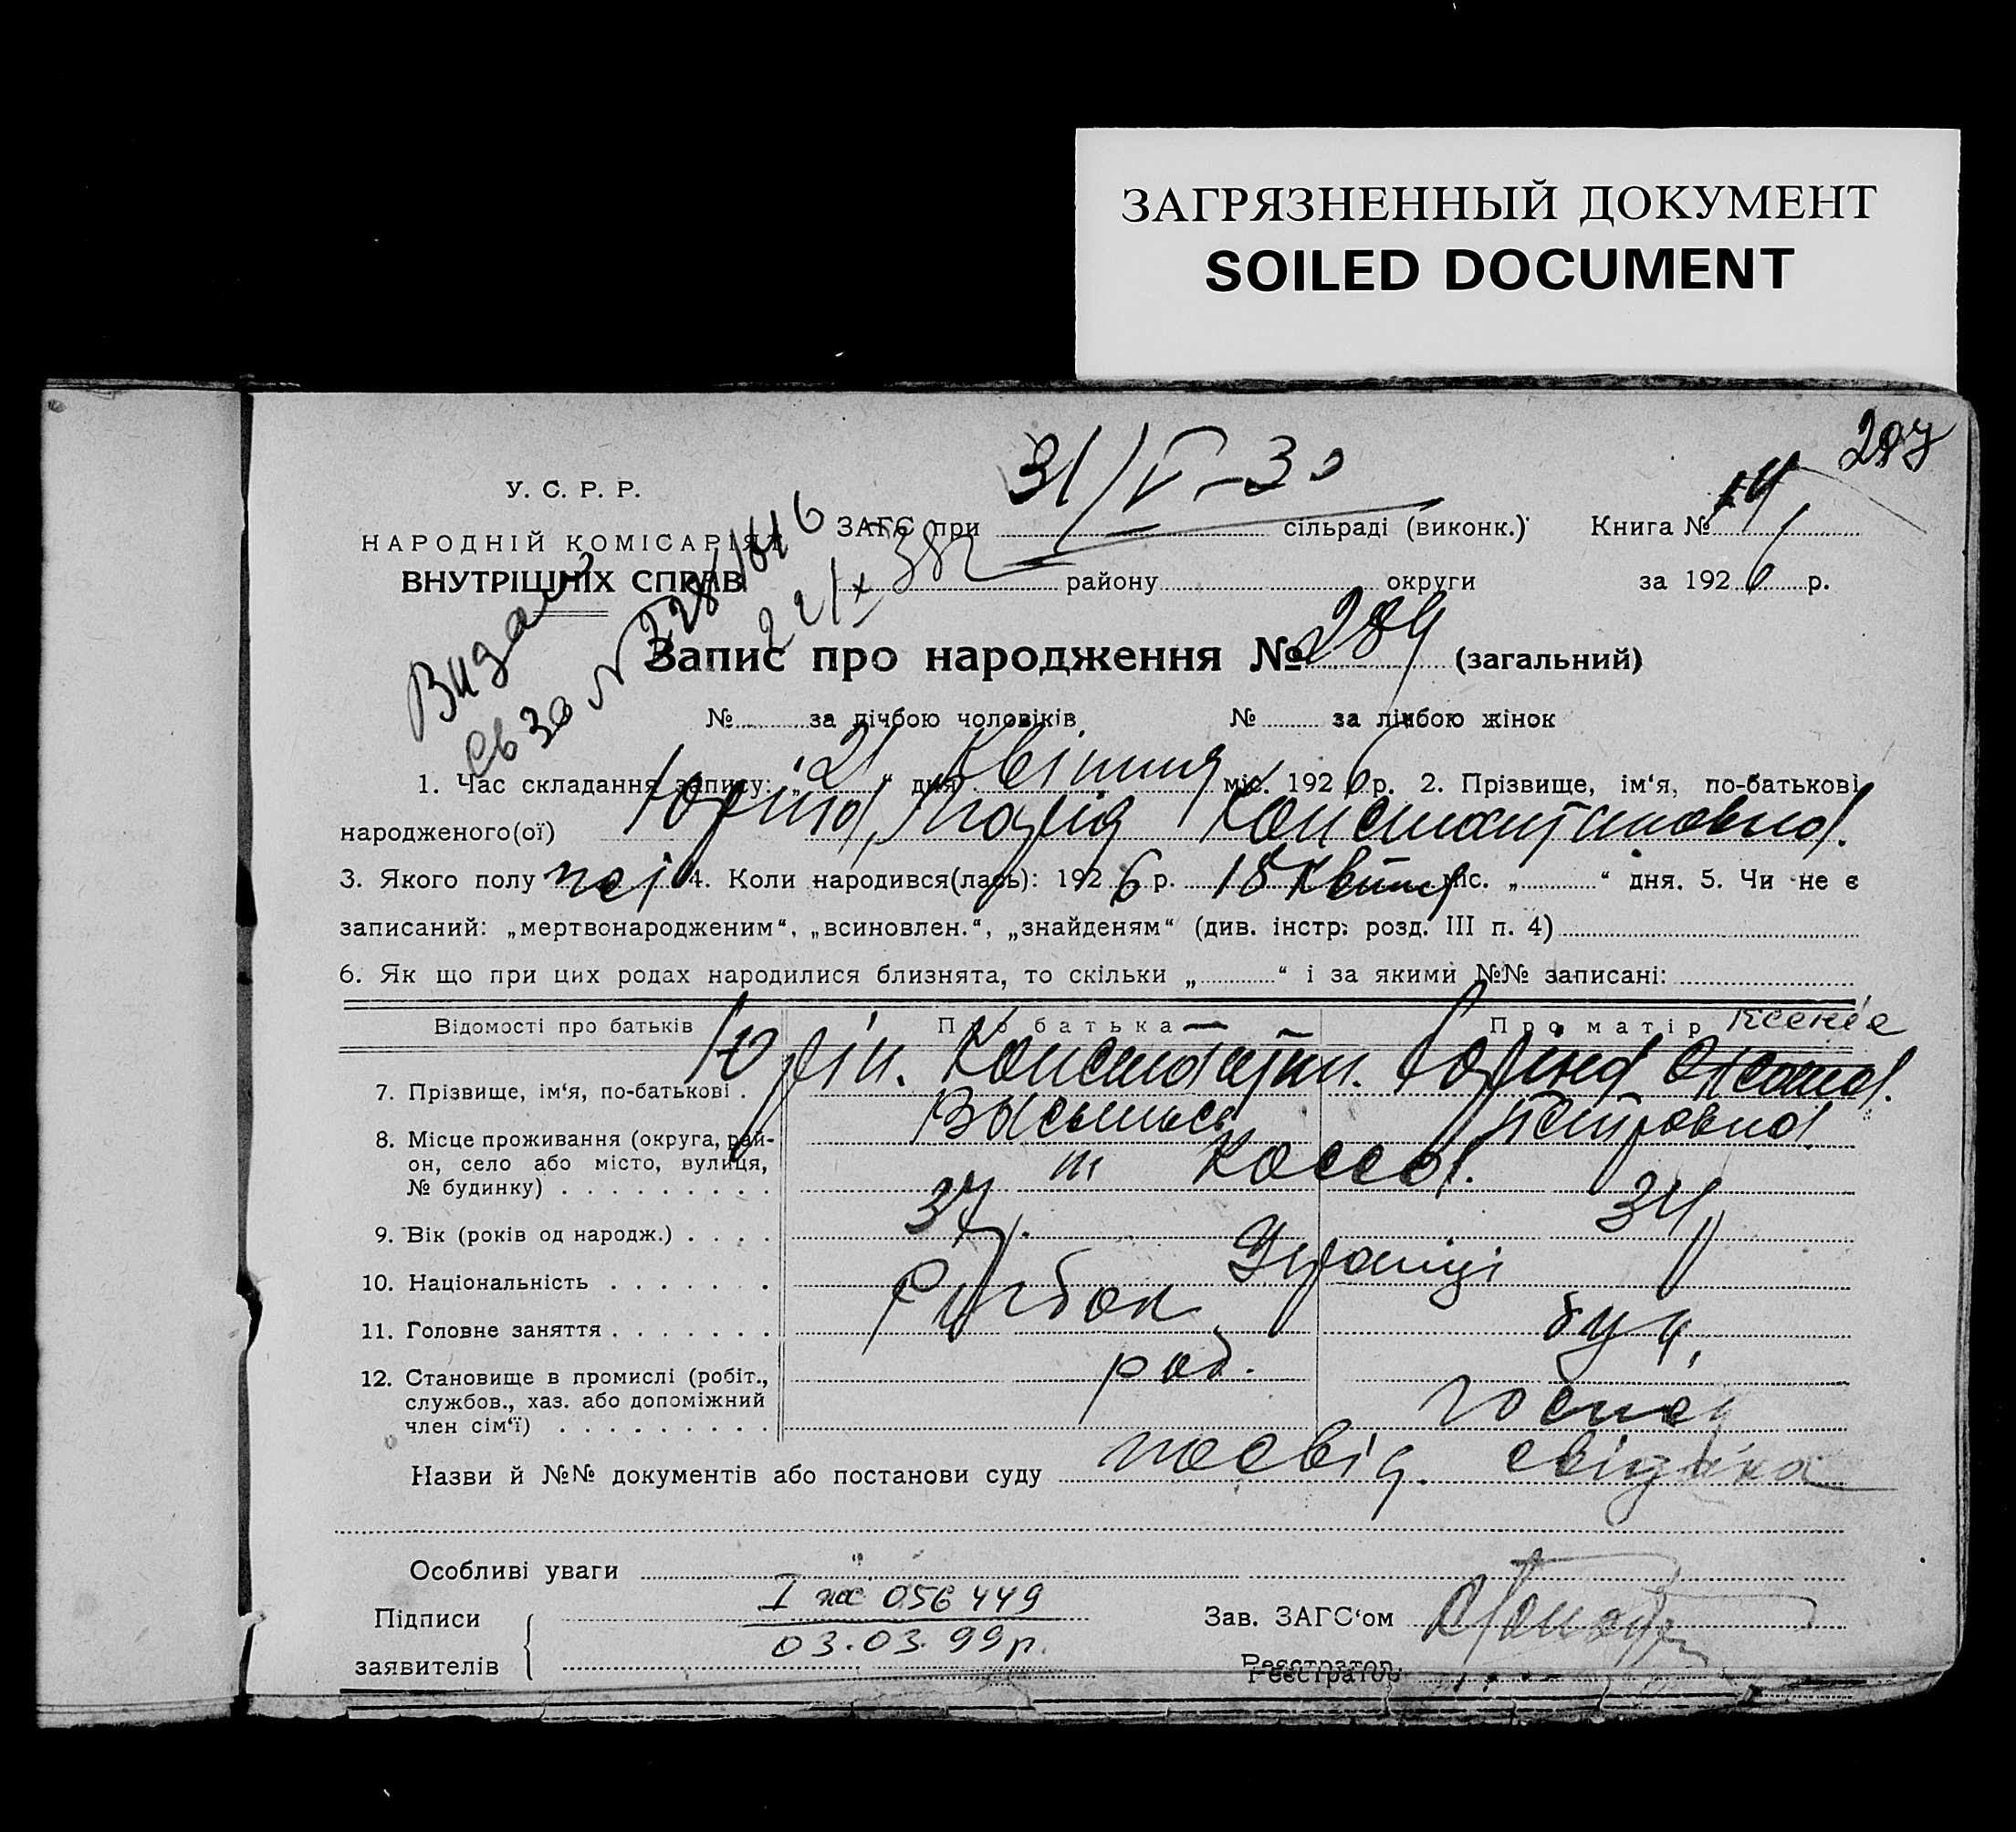 ЗАГРЯЗНЕННЫЙ ДОКУМЕНТ
SOILED DOCUMENT
31/V-30
У. С. Р. Р.
НАРОДНІЙ КОМІСАРІЯТ
ВНУТРІШНІХ СПРАВ
ЗАГС при сільраді (виконк.) Книга № 14
району округи за 1926 р.
Запис про народження № 289 (загальний)
№ за лічбою чоловіків № за лічбою жінок
1. Час складання запису: „21“ дня Квітня міс. 1926 р. 2. Прізвище, ім'я, по-батькові
народженого(ої) Юріна, Марія Константиновна.
3. Якого полу 4. Коли народився(лась): 1926 р. 18 Квітня міс. „ “ дня. 5. Чи не є
записаний: „мертвонародженим“, „всиновлен.“, „знайденям“ (див. інстр. розд. III п. 4)
6. Як що при цих родах народилися близнята, то скільки „ “ і за якими №№ записані:
Відомості про батьків Про батька Про матір Ксенія
7. Прізвище, ім'я, по-батькові . Юрін. Константин. Юріна Оксана.
Петровна
8. Місце проживання (округа, рай-
он, село або місто, вулиця,
№ будинку) . . . . . . . . .
9. Вік (років од народж.) . . . . 37 34
10. Національність . . . . . . . Украінці
11. Головне заняття . . . . . . .
12. Становище в промислі (робіт.,
службов., хаз. або допоміжний
член сім'ї) . . . . . . . . . роб.
Назви й №№ документів або постанови суду посвід. свідка
Особливі уваги
Підписи I жс 056449
заявителів 03.03.99р.
Зав. ЗАГС'ом
Реєстратор